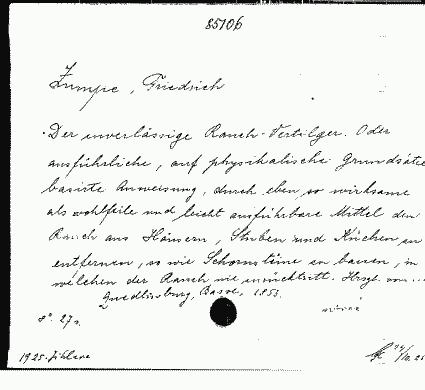 85106
Zumpe, Friedrich
Der unverlässige Rauch-Vertilger. Oder
ausführliche, auf physikalische Grundsätze
basirte Anweisung, durch eben so wirksame
als wohlfeile und leicht ausführbare Mittel den
Rauch aus Häusern, Stuben und Küchen zu
entfernen, so wie Schornsteine zu bauen, in
welchen der Rauch nie zurücktritt. Hrsg. von ...
Quedlinburg, Basse, 1853.
8°. 27
1925.